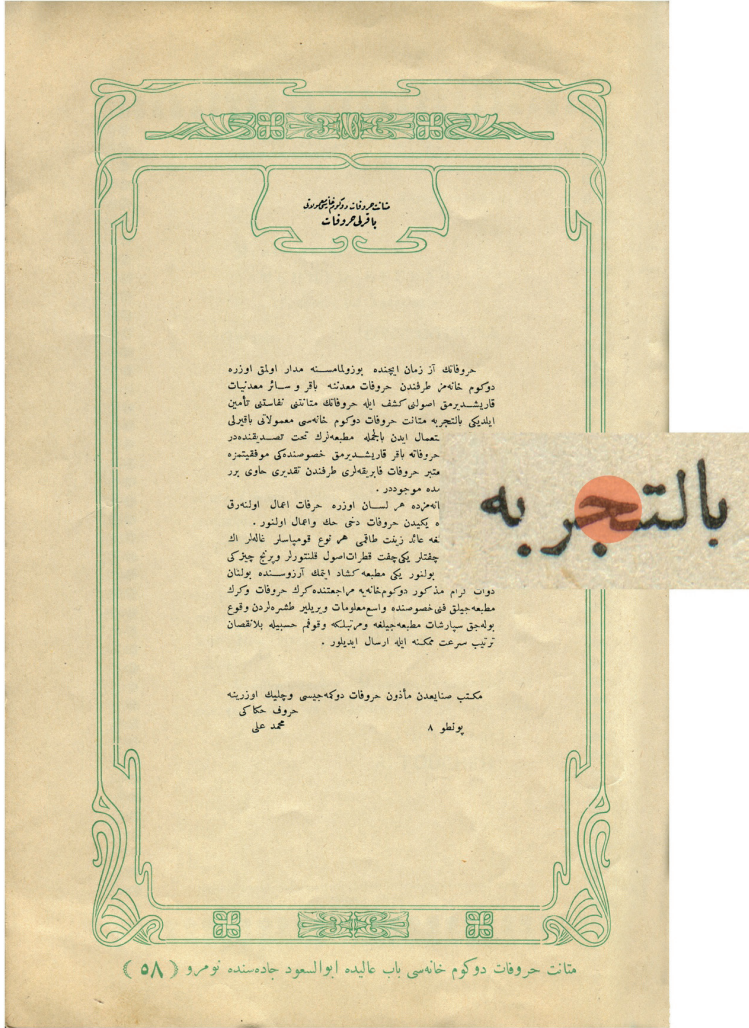 متانت حروفات دوكوم خانه‌سی معمولاتی
باقرلی حروفات
حروفاتك آز زمان ایچنده بوزولمامسنه مدار اولمق اوزره
دوكوم خانه‌مز طرفندن حروفات معدننه باقر و سائر معدنیات
قاریشدیرمق اصولنی كشف ایله حروفاتك متانتنی نفاستنی تأمین
ایلدیكی بالتجربه متانت حروفات دوكوم خانه‌سی معمولاتی باقیرلی
ستعمال ایدن بالجمله مطبعه‌لرك تحت تصدیقنده‌در
حروفاته باقر قاریشدیرمق خصوصنده‌كی موفقیتمزه
معتبر حروفات فابریقه‌لری طرفندن تقدیری حاوی برر
موجوددر .
انه‌مزده هر لسان اوزره حرفات اعمال اولنه‌رق
ه یكیدن حروفات دخی حك واعمال اولنور .
لغه عائد زینت طاقمی هر نوع قومپاسلر غاله‌لر اك
چفتلر یكی‌چفت قطرات‌اصول فلنتورلر وپرنج چیزكی
بولنور یكی مطبعه كشاد ایتمك آرزوسنده بولنان
ذوات كرام مذكور دوكوم‌خانه‌یه مراجعتنده كرك حروفات وكرك
مطبعه‌جیلق فنی خصوصنده واسع معلومات ویریلیر طشره‌لردن وقوع
بوله‌جق سپارشات مطبعه‌جیلغه ومرتبلكه وقوفم حسبیله بلانقصان
ترتیب سرعت ممكنه ایله ارسال ایدیلور .
مكتب صنایعدن مأذون حروفات دوكمه‌جیسی وچلیك اوزرینه
حروف حكاكی
پونطو ٨ محمد علی
بالتجربه
متانت حروفات دوكوم خانه‌سی باب عالیده ابوالسعود جاده‌سنده نومرو ( ٥٨ )